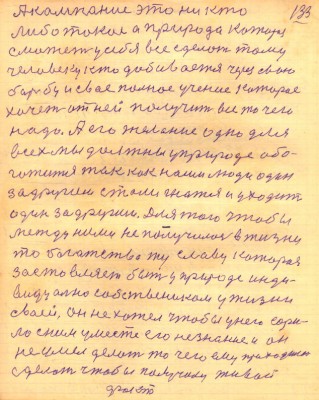 133
А кампание это ни кто
либо такое а природа катора
сможет у себя все сделат таму
человеку кто добивается через свою
барбу и свае полное учение катарае
хочет от ней получит все то чего
надо. А его желание одно для
всех мы должны у природе або-
гатится так как наши люди один
за другим стали гнатся и уходит
один за другим. Для того чтобы
между ними не получилос в жизни
то богатство ту славу катарая
заставляет быт у природе инди-
видуално собствеником у жизни
своей, он не хотел чтобы у него
с ним у месте его незнание и он
не умел делат то чего ему
сделат чтобы получит живой